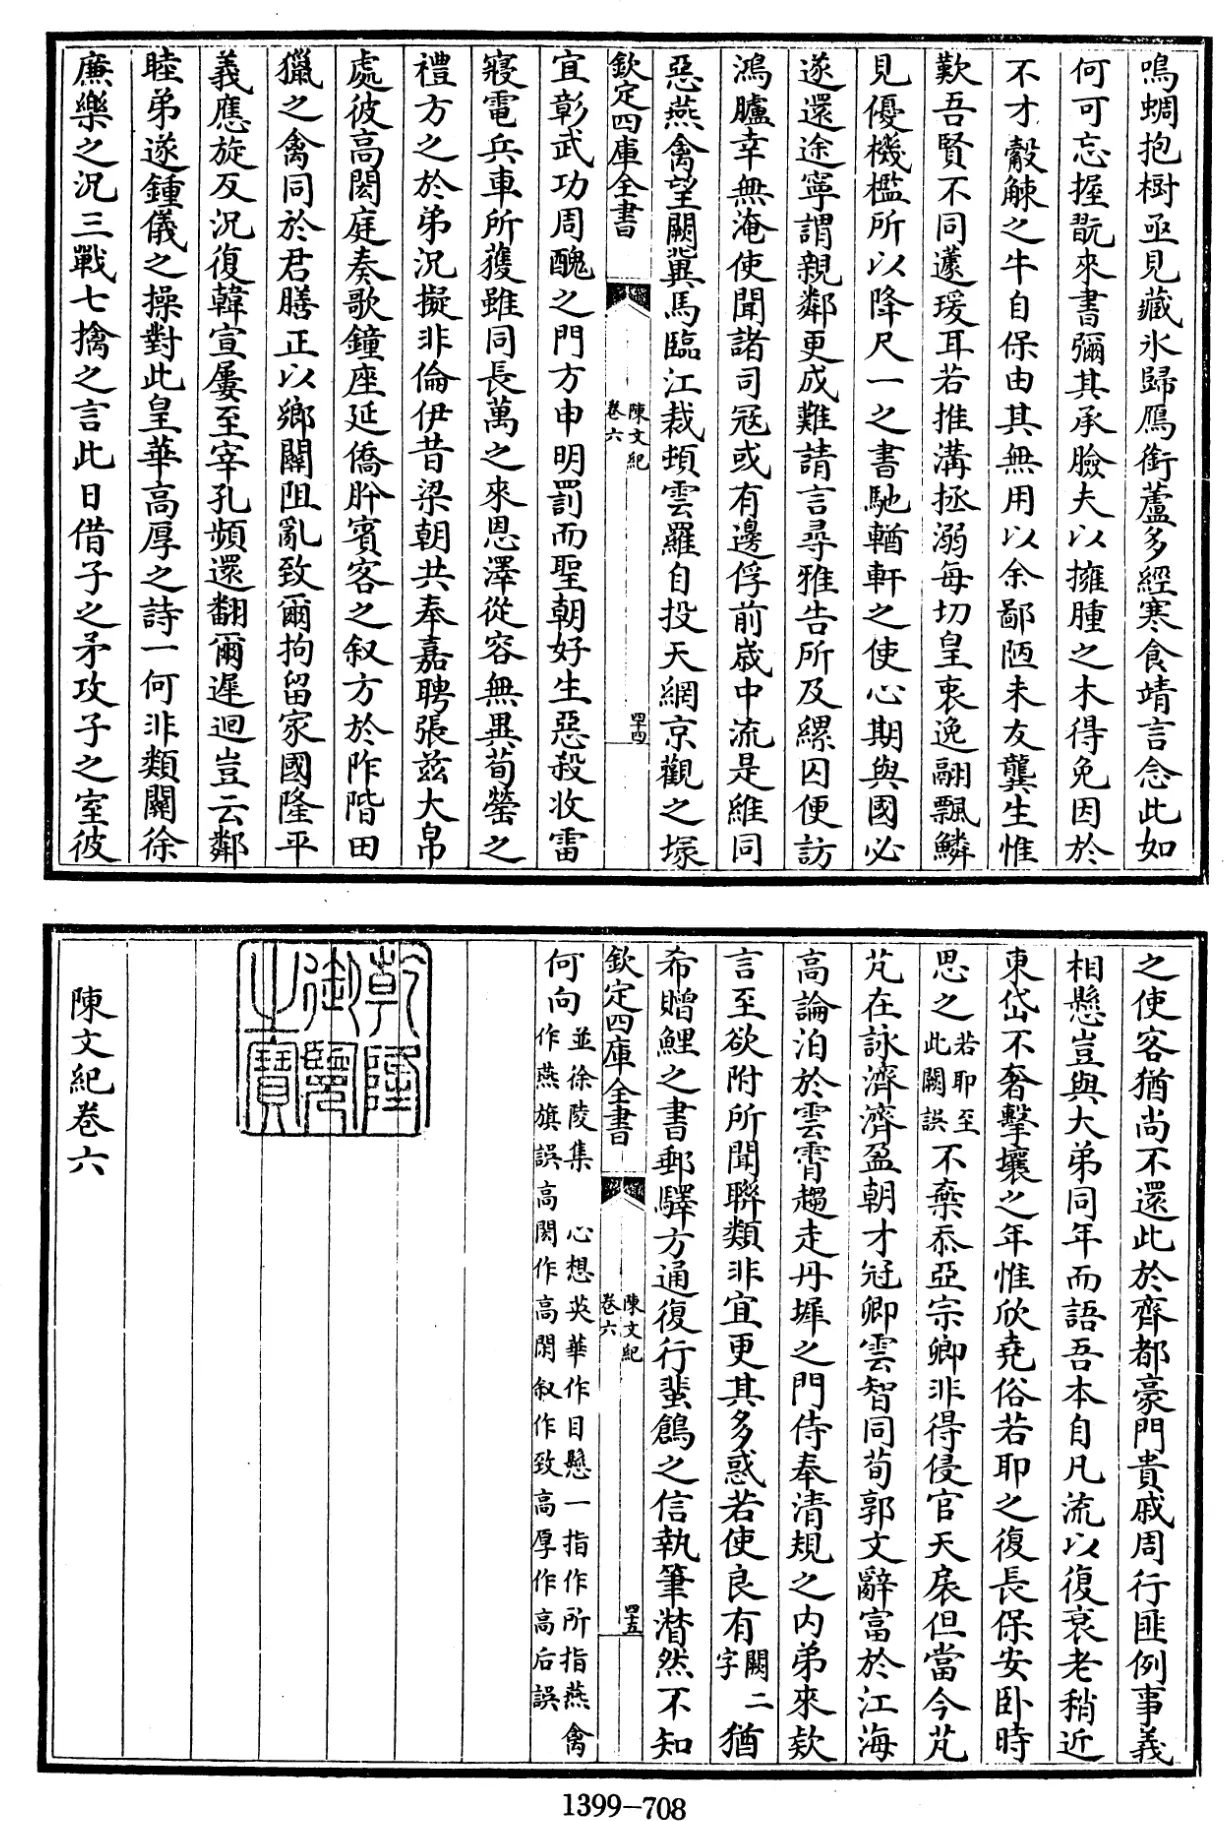 鳴蜩抱樹亟見藏氷歸鴈銜蘆多經寒食靖言念此如
何可忘握翫來書彌其承臉夫以擁腫之木得免因於
不才觳觫之牛自保由其無用以余鄙陋未友龔生惟
歎吾賢不同蘧瑗耳若推溝拯溺每切皇衷逸翮飄鱗
見優機檻所以降尺一之書馳輶軒之使心期與國必
遂還途寧謂親鄰更成難請言尋雅告所及縲囚便訪
鴻臚幸無淹使聞諸司冦或有邊俘前歳中流是維同
惡燕禽望闕冀馬臨江裁頊雲羅自投天網京觀之塚
欽定四庫全書
陳文紀
卷六
四十四
宜彰武功周醜之門方申明罰而聖朝好生惡殺收雷
寢電兵車所獲雖同長萬之來恩澤從容無異荀罃之
禮方之於弟況擬非倫伊昔梁朝共奉嘉聘張兹大帛
處彼高閎庭奏歌鐘座延僑肸賓客之叙方於阼階田
獵之禽同於君膳正以鄉關阻亂致爾拘留家國隆平
義應旋反況復韓宣屢至宰孔頻還翻爾遲迴豈云鄰
睦弟遂鍾儀之操對此皇華高厚之詩一何非類關徐
廉樂之況三戰七擒之言此日借子之矛攻子之室彼
之使客猶尚不還此於齊都豪門貴戚周行匪例事義
相懸豈與大弟同年而語吾本自凡流以復衰老稍近
東岱不奢擊壤之年惟欣堯俗若耶之復長保安卧時
思之若耶至此闕誤不棄忝亞宗卿非得侵官天扆但當今芃
芃在詠濟濟盈朝才冠卿雲智同荀郭文辭富於江海
高論泊於雲霄趨走丹墀之門侍奉清規之内弟來欵
言至欲附所聞聨類非宜更其多惑若使良有闕二字猶
希贈鯉之書郵驛方通復行蜚鷁之信執筆潸然不知
欽定四庫全書
陳文紀
卷六
四十五
何向並徐陵集 心想英華作目懸一指作所指燕禽
作燕旗誤高閎作高閑叙作致高厚作高后誤
乾隆御覽之寶
陳文紀卷六
1399-708